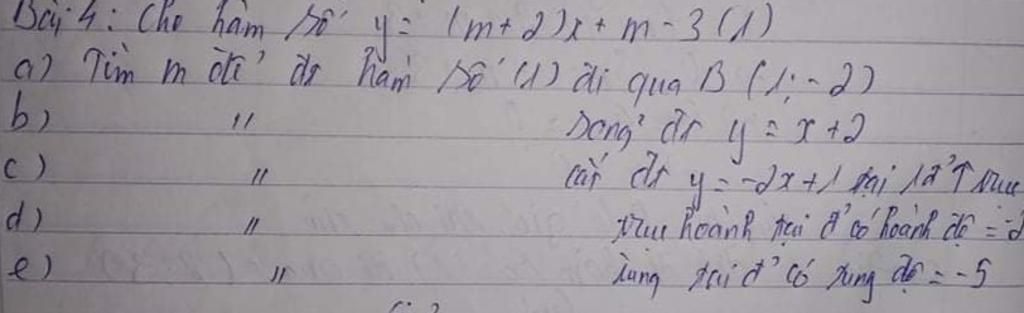 Bài 4: Cho hàm số y = (m+2)x + m - 3 (1)
a) Tìm m để đt hàm số (1) đi qua B (1; -2)
b) " song² đt y = x + 2
c) " cắt đt y = -2x + 1 tại 1 đ' ↑ trục
d) " trục hoành tại đ' có hoành độ = -2
e) " tung tại đ' có tung độ = -5